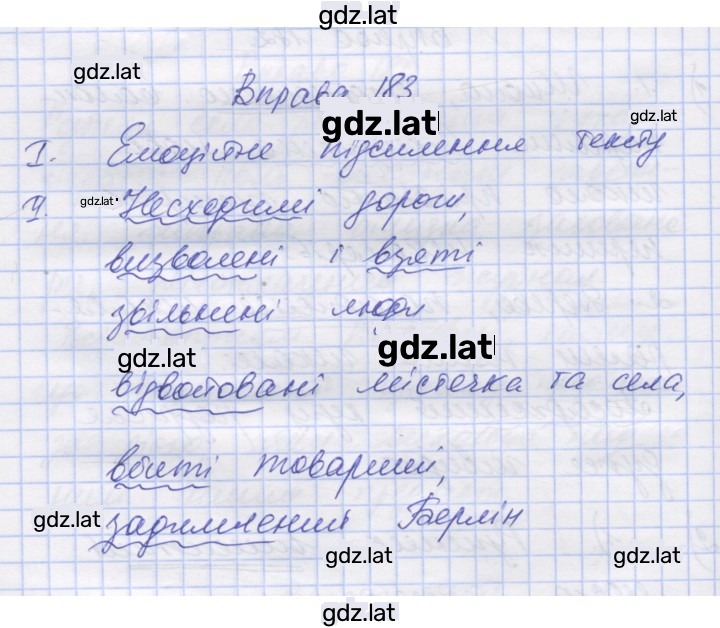 gdz.lat
gdz.lat
Вправа 183
gdz.lat
gdz.lat
І. Емоційне підсилення тексту
gdz.lat
У. Несходимі дороги,
визволені і взяті
звільнені люди
gdz.lat
gdz.lat
відвойовані містечка та села,
вбиті товариші,
gdz.lat
задимлений Берлін
gdz.lat
gdz.lat
gdz.lat